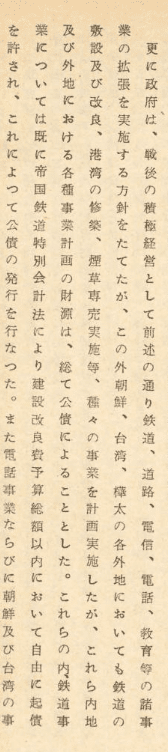 更に政府は、戦後の積極経営として前述の通り鉄道、道路、電信、電話、教育等の諸事
業の拡張を実施する方針をたてたが、この外朝鮮、台湾、樺太の各外地においても鉄道の
敷設及び改良、港湾の修築、煙草専売実施等、種々の事業を計画実施したが、これら内地
及び外地における各種事業計画の財源は、総て公債によることとした。これらの内、鉄道事
業については既に帝国鉄道特別会計法により建設改良費予算総額以内において自由に起債
を許され、これによつて公債の発行を行なつた。また電話事業ならびに朝鮮及び台湾の事